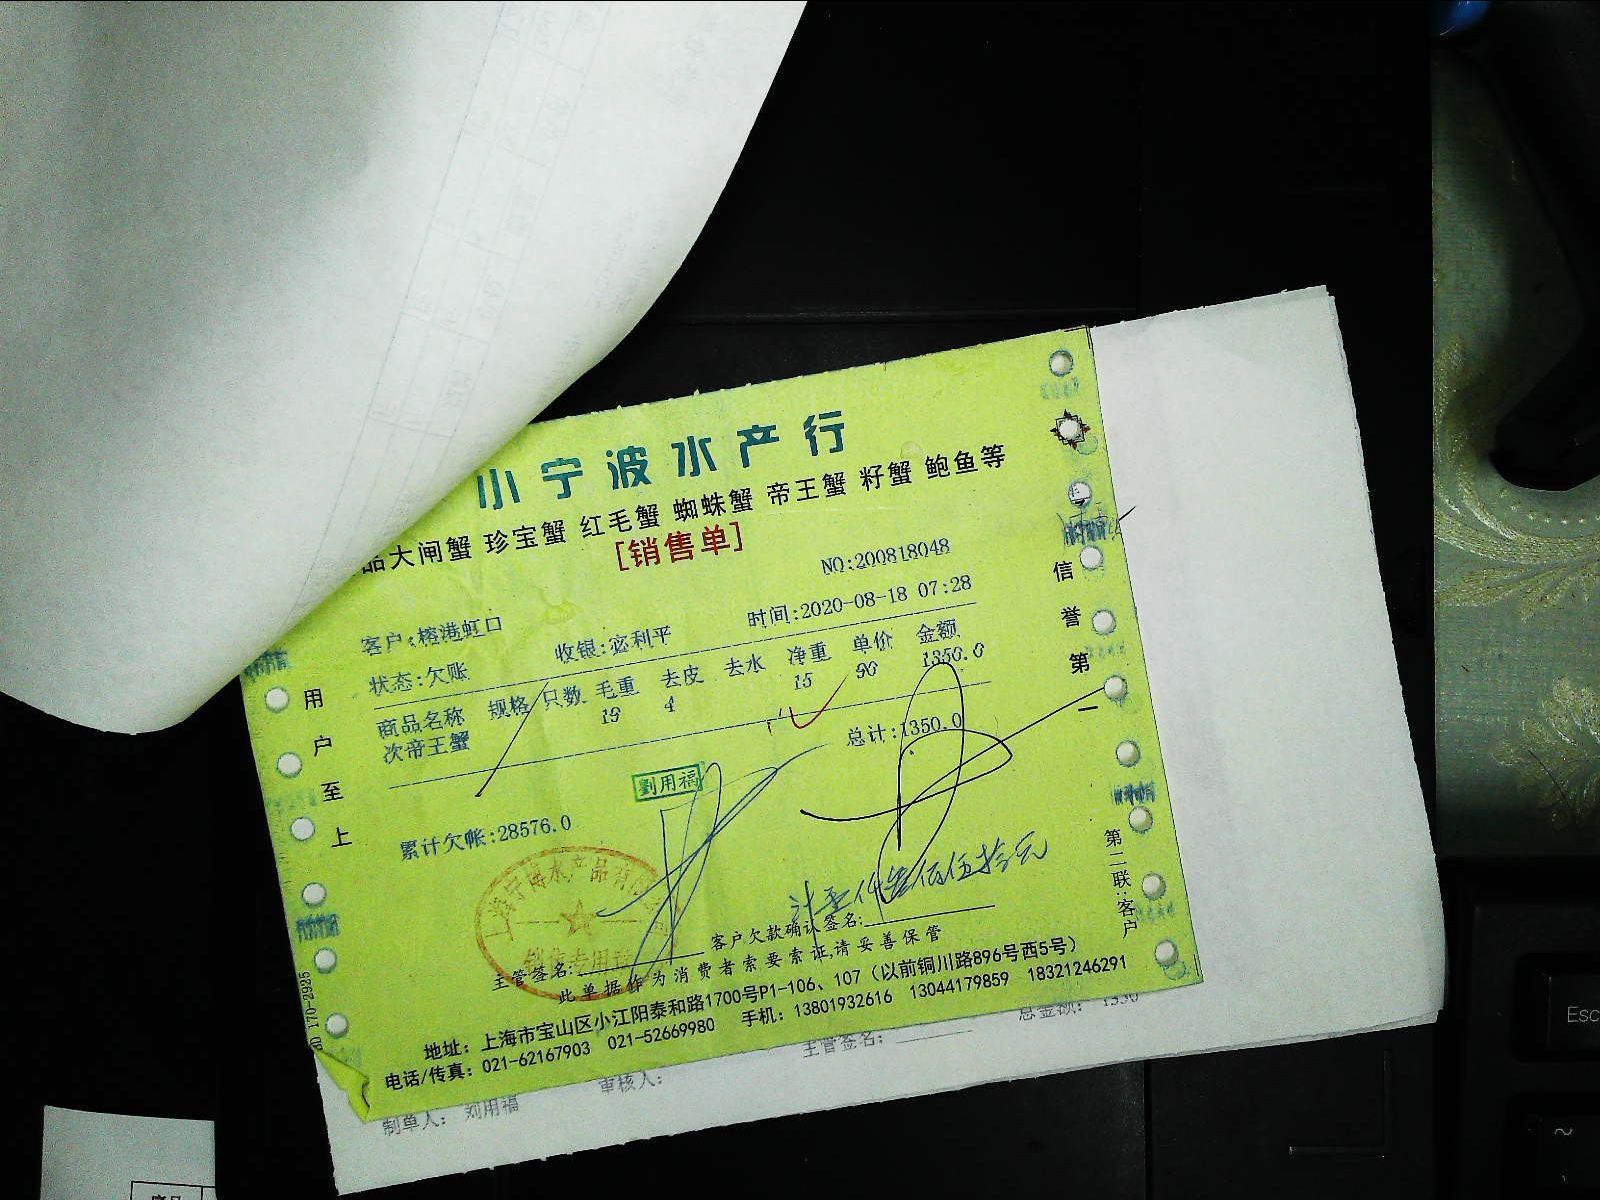 小宁波水产行
品大闸蟹 珍宝蟹 红毛蟹 蜘蛛蟹 帝王蟹 籽蟹 鲍鱼等
[销售单]
NO:200818048
客户:榕港虹口
收银:宓利平
时间:2020-08-18 07:28
状态:欠账
商品名称 规格 只数 毛重 去皮 去水 净重 单价 金额
次帝王蟹 19 4 15 90 1350.0
总计:1350.0
劉用福
累计欠帐:28576.0
计壹仟叁佰伍拾元
上海宁博水产品有限公司
销售专用章
主管签名:
客户欠款确认签名:
此单据作为消费者索要索证,请妥善保管
地址：上海市宝山区小江阳泰和路1700号P1-106、107（以前铜川路896号西5号）
电话/传真：021-62167903 021-52669980 手机：13801932616 13044179859 18321246291
用户至上
信誉第一
第二联:客户
170-2925
制单人： 刘用福
审核人：
主管签名：
总金额： 1350
Esc
~